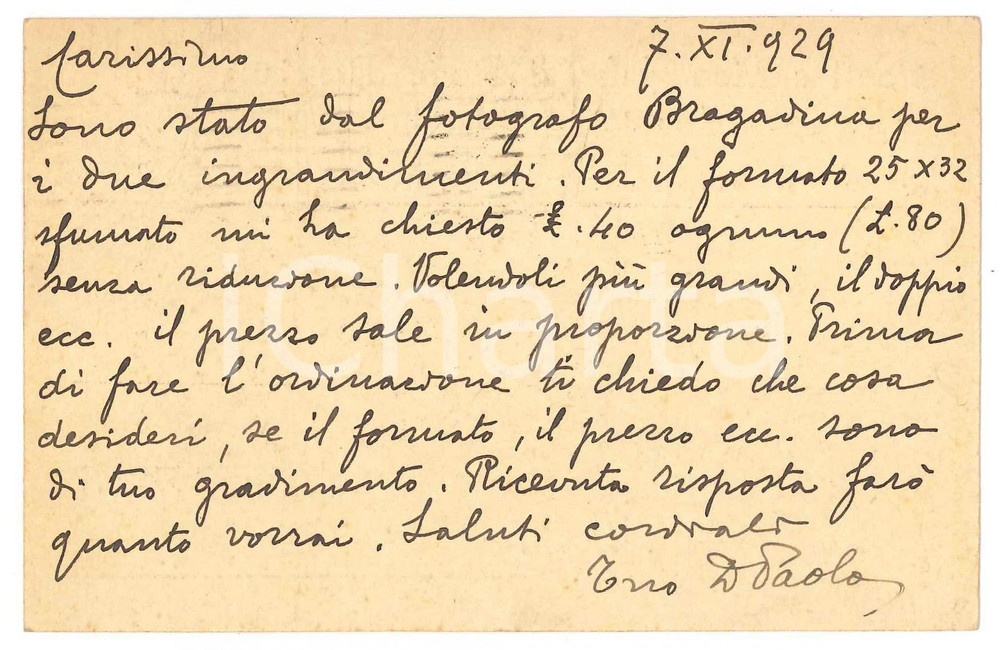 Carissimo 7.XI.929
Sono stato dal fotografo Bragadina per
i due ingrandimenti. Per il formato 25x32
sfumato mi ha chiesto £.40 ognuno (£.80)
senza riduzione. Volendoli più grandi, il doppio
ecc. il prezzo sale in proporzione. Prima
di fare l'ordinazione ti chiedo che cosa
desideri, se il formato, il prezzo ecc. sono
di tuo gradimento. Ricevuta risposta farò
quanto vorrai. Saluti cordiali
Tuo D Paolo
iCharta